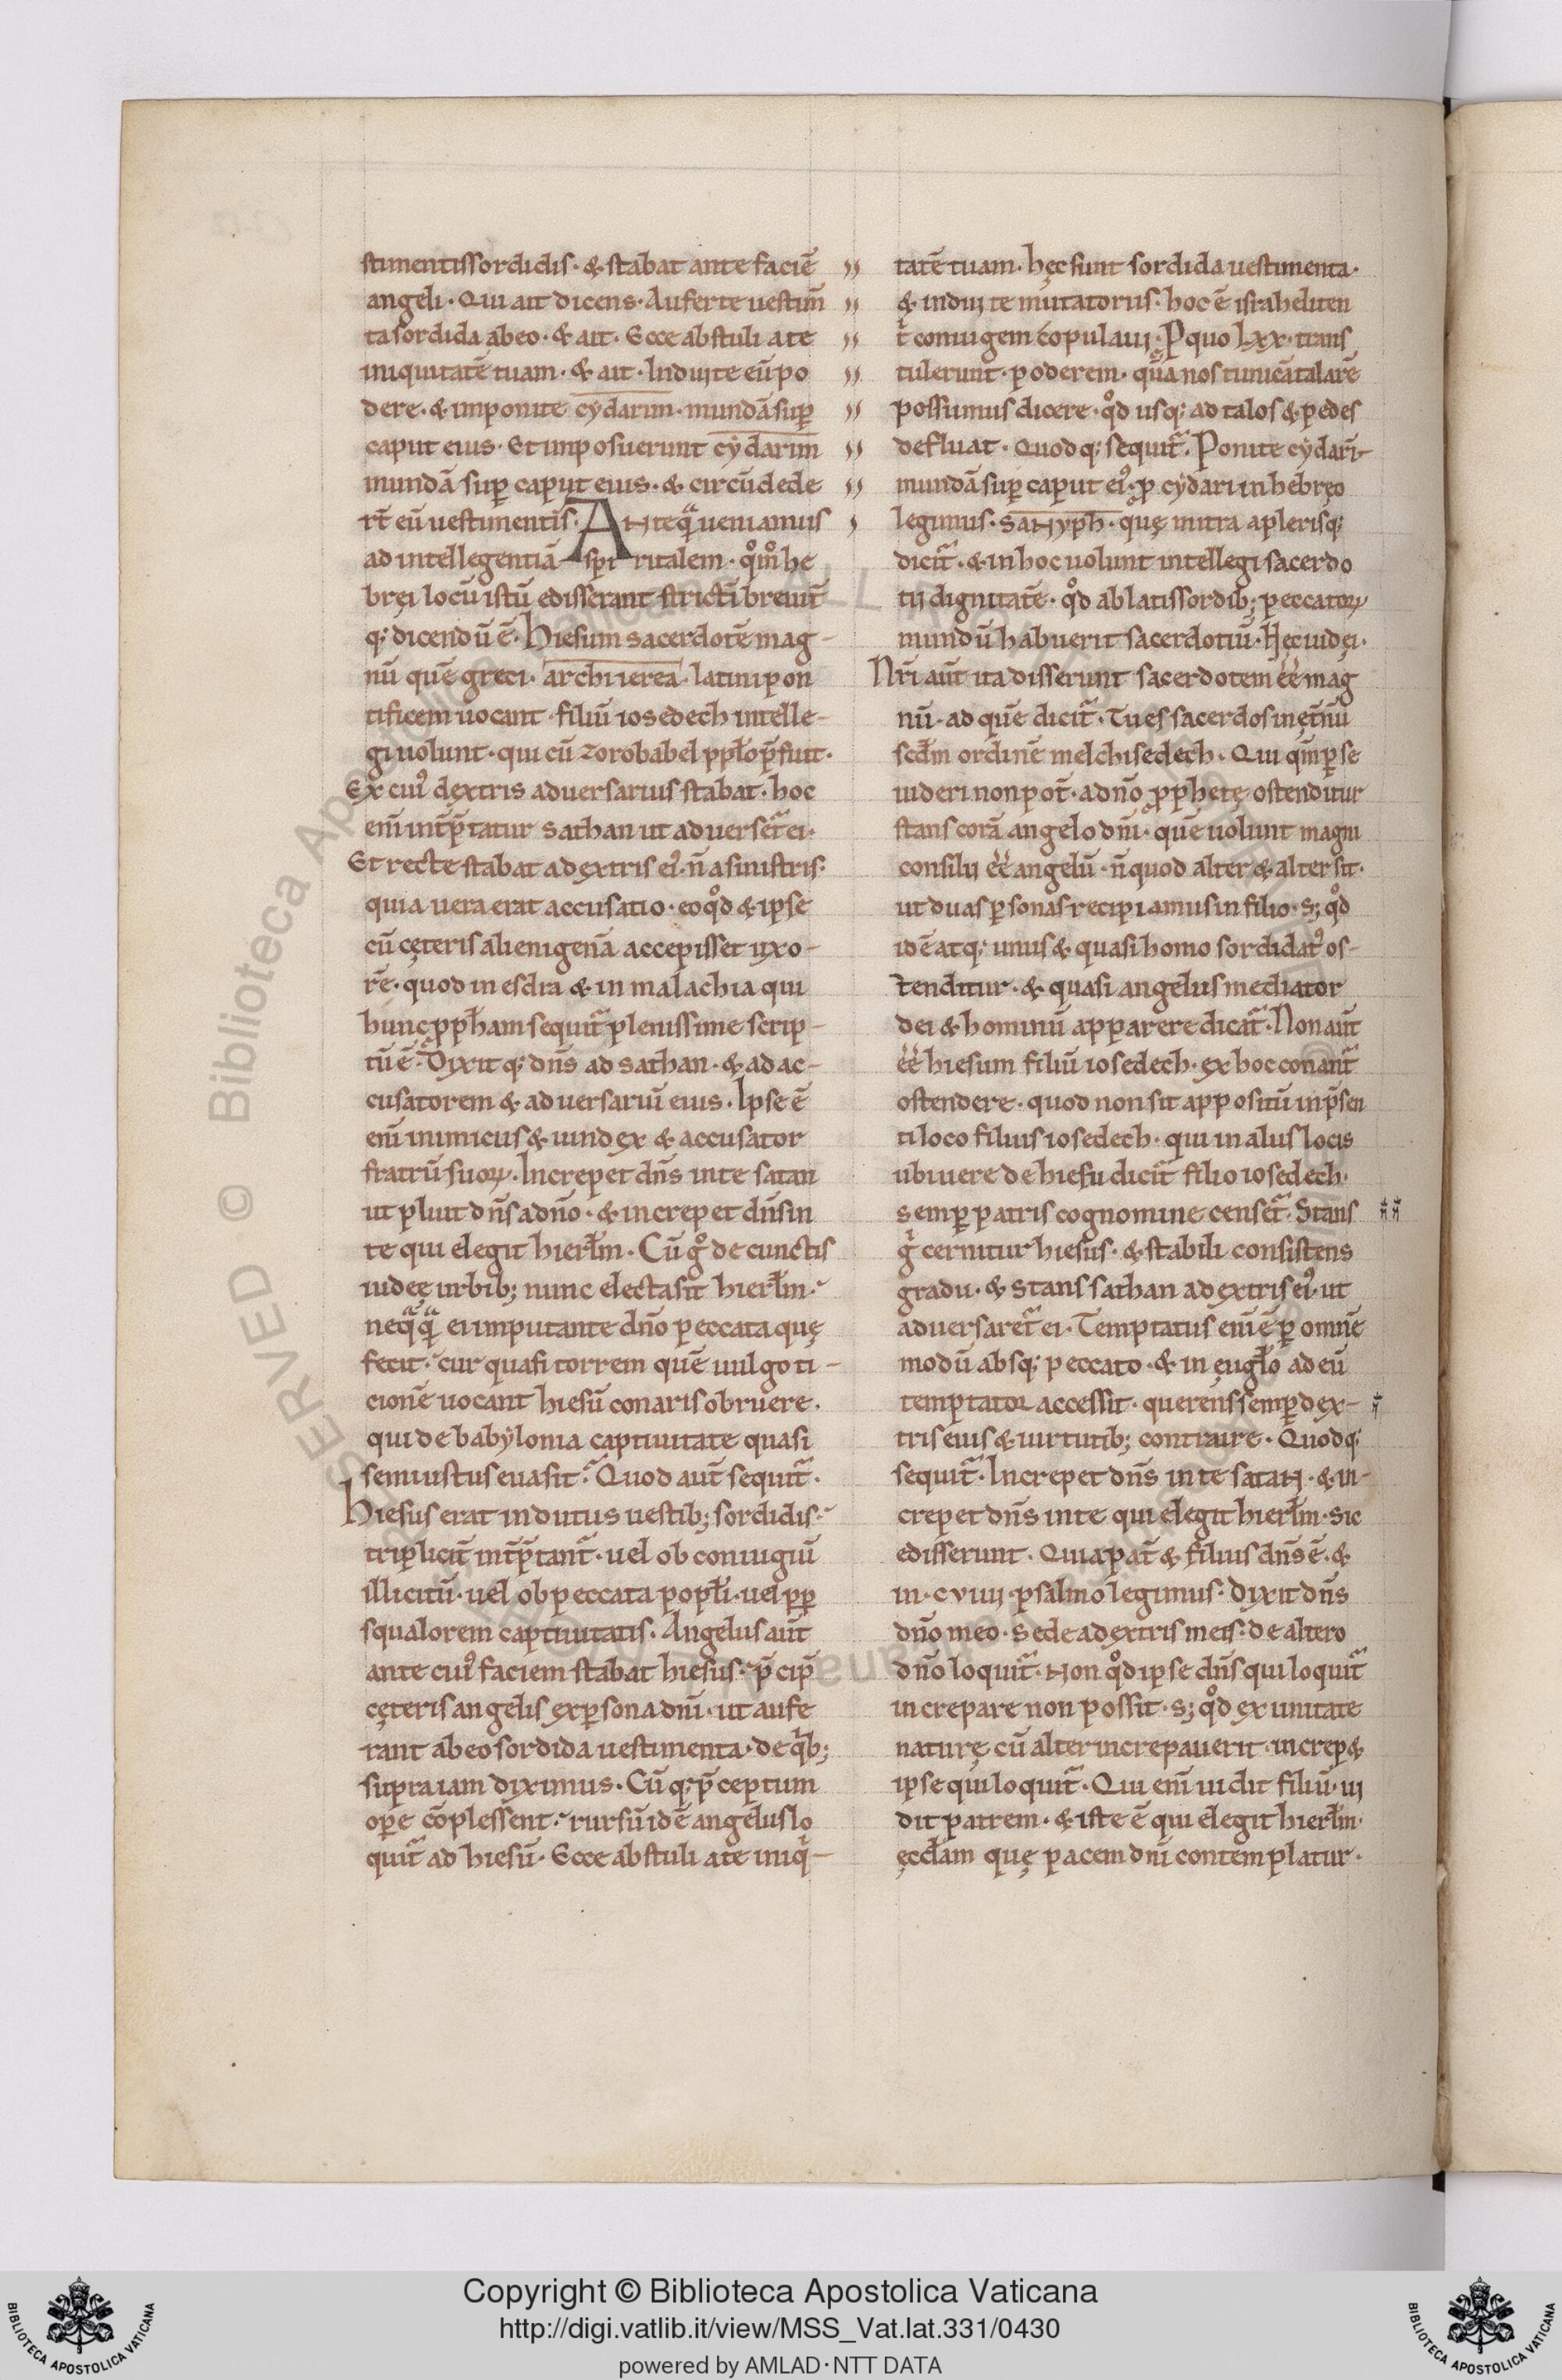 stimentis sordidis · & stabat ante faciē
angeli · Qui ait dicens · Auferte uestim̄
ta sordida ab eo · & ait · Ecce abstuli a te
iniquitatē tuam · & ait · Induite eū po
dere · & imponite cydarim · mundā suꝑ
caput eius · Et imposuerunt cydarim
mundā suꝑ caput eius · & circūdede
rt̄ eū uestimentis · Anteqᷓ ueniamus
ad intellegentiā spiritalem · qͦm̊ he
brei locū istū edisserant strictī breuit̄
q; dicendū ē · Hiesum sacerdotē mag-
nū quē greci · archierea · latini pon
tificem uocant · filiū iosedech intelle-
gi uolunt · qui cū zorobabel ppl̄o p̄fuit ·
Ex cui᷒ dextris aduersarius stabat · hoc
enī int̄p̄tatur sathan ut aduerset᷑ ei ·
Et recte stabat a dextris ei᷒ · n̄ a sinistris ·
quia uera erat accusatio · eo qͦd & ipse
cū cęteris alienigenā accepisset uxo-
rē · quod in esdra & in malachia qui
hunc ꝓph̄am sequit᷑ plenissime scrip-
tū ē · Dixit q; dn̄s ad sathan · & ad ac-
cusatorem & aduersariū eius · Ipse ē
enī inimicus & uindex & accusator
fratrū suoꝝ · Increpet dn̄s in te satan
ut pluit dn̄s a dn̄o · & increpet dn̄s in
te qui elegit hierl̄m · Cū gͦ de cunctis
iudeę urbib; nunc electa sit hierl̄m ·
neqᷓqᷓ ei imputante dn̄o peccata quę
fecit · cur quasi torrem quē uulgo ti-
cionē uocant hiesū conaris obruere ·
qui de babylonia captiuitate quasi
semiustus euasit · Quod aut̄ sequit᷑ ·
Hiesus erat indutus uestib; sordidis ·
triplicit̄ int̄p̄tant᷑ · uel ob coniugiū
illicitū · uel ob peccata popl̄i · uel ꝓp
squalorem captiuitatis · Angelus aut̄
ante cui᷒ faciem stabat hiesus · p̄cip̄
cęteris angelis ex ꝑsona dn̄i · ut aufe
rant ab eo sordida uestimenta · de qͥb;
supra iam diximus · Cū q; p̄ceptum
oꝑe cōplessent · rursū idē angelus lo
quit᷑ ad hiesū · Ecce abstuli a te iniqͥ-
tatē tuam · hęc sunt sordida uestimenta ·
& indui te mutatoriis · hoc ē israheliten
tͥ coniugem copulaui · P quo Lxx · trans
tulerunt · poderem · quā nos tunicā talarē
possumus dicere · qͦd usq; ad talos & pedes
defluat · Quod q; sequit᷑ · Ponite cydarī
mundā suꝑ caput ei᷒ · ꝓ cydari in hebręo
legimus · sanyph · quę mitra a plerisq;
dicit᷑ · & in hoc uolunt intellegi sacerdo
tij dignitatē · qͦd ablatis sordib; peccatoꝝ
mundū habuerit sacerdotiū · Hęc iudęi ·
Nr̄i aut̄ ita disserunt sacerdotem ēē mag
nū · ad quē dicit᷑ · Tu es sacerdos in ęt̄nū
scd̄m ordinē melchisedech · Qui qm̄ ꝑ se
uideri non pot̄ · a dn̄o ꝓphetę ostenditur
stans corā angelo dn̄i · quē uolunt magni
consilii ēē angelū · n̄ quod alter & alter sit ·
ut duas ꝑsonas recipiamus in filio · s; qͦd
idē atq; unus & quasi homo sordidat᷒ os-
tenditur · & quasi angelus mediator
dei & hominū apparere dicat᷑ · Non aut̄
ēē hiesum filiū iosedech · ex hoc conant᷑
ostendere · quod non sit appositū in p̄sen
ti loco filius iosedech · qui in aliis locis
ubi uere de hiesu dicit᷑ filio iosedech ·
semꝑ patris cognomine censet᷑ · Stans
gͥ cernitur hiesus · & stabili consistens
gradu · & stans sathan a dextris ei᷒ · ut
aduersaret᷑ ei · Temptatus enī ē ꝑ omnē
modū absq; peccato · & in ęugl̄o ad eū
temptator accessit · querens semꝑ dex-
tris eius & uirtutib; contraire · Quod q;
sequit᷑ · Increpet dn̄s in te satan · & in-
crepet dn̄s in te qui elegit hierl̄m · sic
edisserunt · Quia pat̄ & filius dn̄s ē · &
in · cviiij · psalmo legimus · Dixit dn̄s
dn̄o meo · sede a dextris meis · de altero
dn̄o loquit᷑ · Non qͦd ipse dn̄s qui loquit᷑
increpare non possit · s; qͦd ex unitate
naturę cū alter increpauerit · increp&
ipse qui loquit᷑ · Qui enī uidit filiū · ui
dit patrem · & iste ē qui elegit hierl̄m ·
ęccl̄am quę pacem dn̄i contemplatur ·
Copyright © Biblioteca Apostolica Vaticana
http://digi.vatlib.it/view/MSS_Vat.lat.331/0430
powered by AMLAD·NTT DATA
BIBLIOTECA APOSTOLICA VATICANA
BIBLIOTECA APOSTOLICA VATICANA